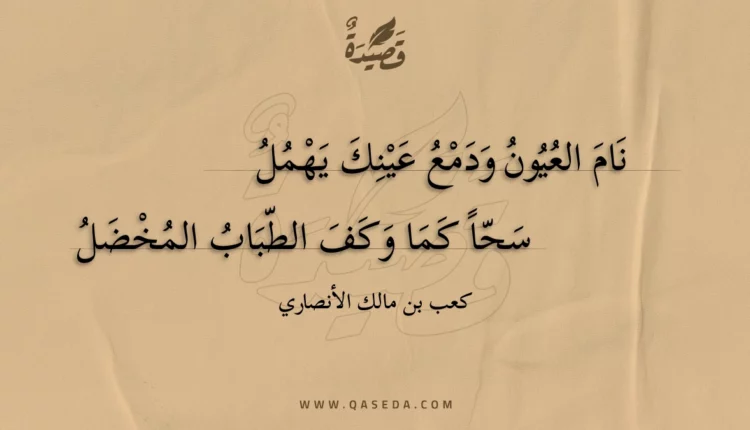 قَصِيْدَةٌ
نَامَ العُيُونُ وَدَمْعُ عَيْنِكَ يَهْمُلُ
سَحّاً كَمَا وَكَفَ الطِّبَابُ المُخْضَلُ
كعب بن مالك الأنصاري
WWW.QASEDA.COM